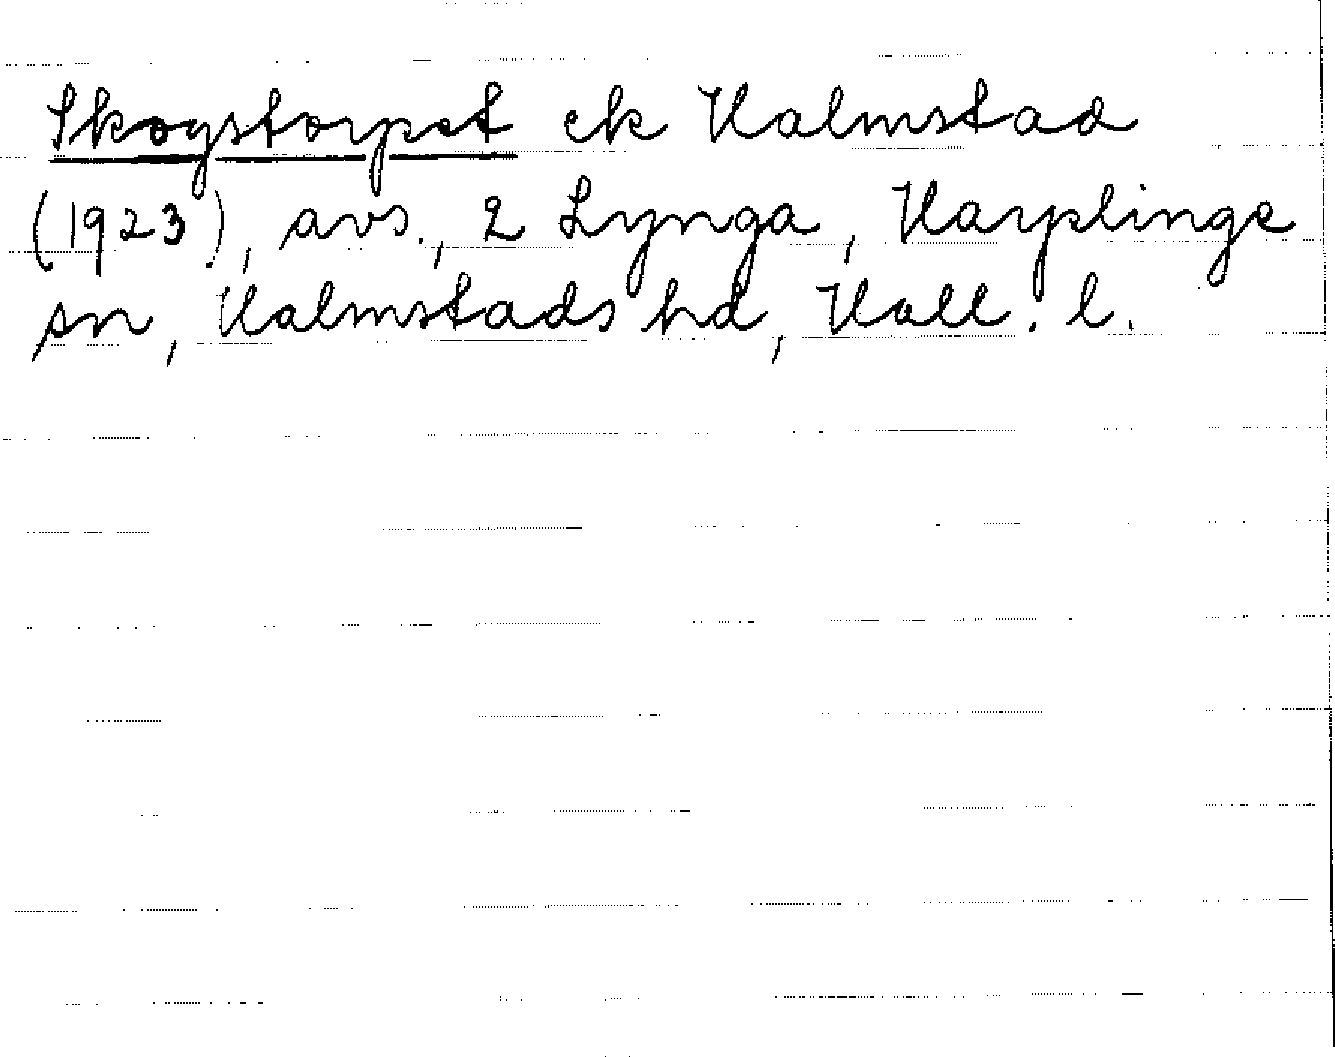 Skogstorpet ek Halmstad
(1923), avs., 2 Lynga, Harplinge
sn, Halmstads hd, Hall. l.